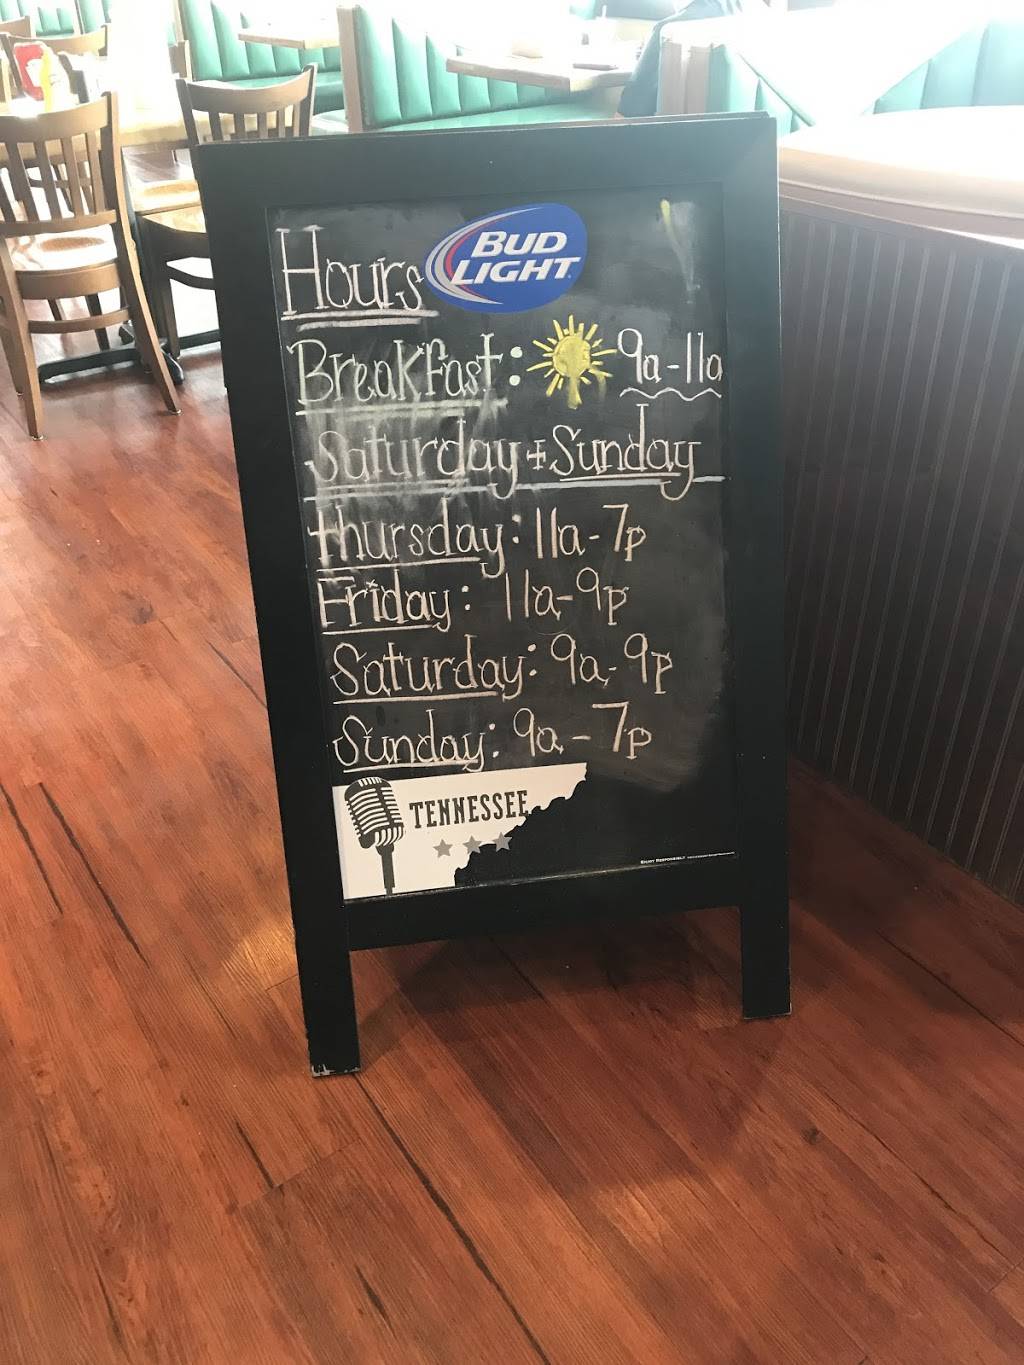 Hours
BUD
LIGHT
Breakfast: 9a-11a
Saturday + Sunday
thursday: 11a-7p
Friday: 11a-9p
Saturday: 9a-9p
Sunday: 9a-7p
TENNESSEE
ENJOY RESPONSIBLY